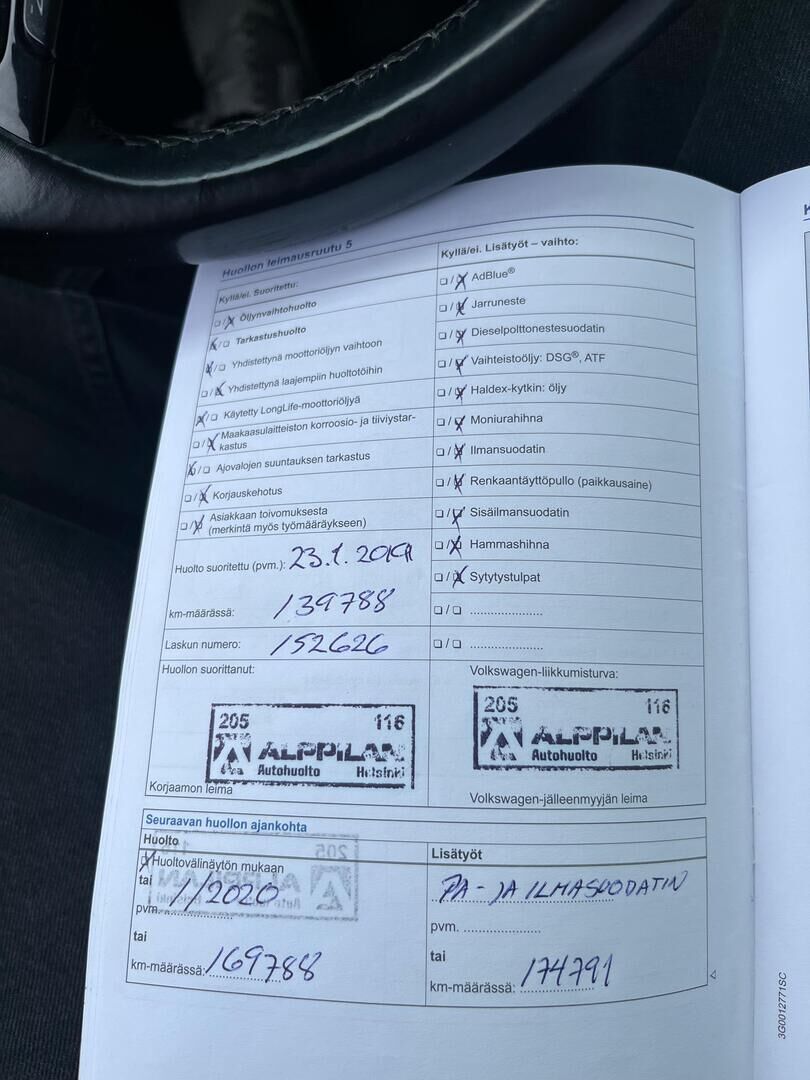 Huollon leimausruutu 5
Kyllä/ei. Suoritettu:
☐/☒ Öljynvaihtohuolto
☒/☐ Tarkastushuolto
☒/☐ Yhdistettynä moottoriöljyn vaihtoon
☐/☒ Yhdistettynä laajempiin huoltotöihin
☒/☐ Käytetty LongLife-moottoriöljyä
☐/☒ Maakaasulaitteiston korroosio- ja tiiviystar-
kastus
☒/☐ Ajovalojen suuntauksen tarkastus
☐/☒ Korjauskehotus
☐/☒ Asiakkaan toivomuksesta
(merkintä myös työmääräykseen)
Huolto suoritettu (pvm.): 23.1.2019
km-määrässä: 139788
Laskun numero: 152626
Huollon suorittanut:
205 116
ALPPILAN
Autohuolto Helsinki
Korjaamon leima
Kyllä/ei. Lisätyöt – vaihto:
☐/☒ AdBlue®
☐/☒ Jarruneste
☐/☒ Dieselpolttonestesuodatin
☐/☒ Vaihteistoöljy: DSG®, ATF
☐/☒ Haldex-kytkin: öljy
☐/☒ Moniurahihna
☐/☒ Ilmansuodatin
☐/☒ Renkaantäyttöpullo (paikkausaine)
☐/☒ Sisäilmansuodatin
☐/☒ Hammashihna
☐/☒ Sytytystulpat
☐/☐ ......................
☐/☐ ......................
Volkswagen-liikkumisturva:
205 116
ALPPILAN
Autohuolto Helsinki
Volkswagen-jälleenmyyjän leima
Seuraavan huollon ajankohta
Huolto
☒ Huoltovälinäytön mukaan
tai
pvm. 1/2020
tai
km-määrässä: 169788
Lisätyöt
PA- JA ILMASUODATIN
pvm. ......................
tai
km-määrässä: 174791
3G0012771SC